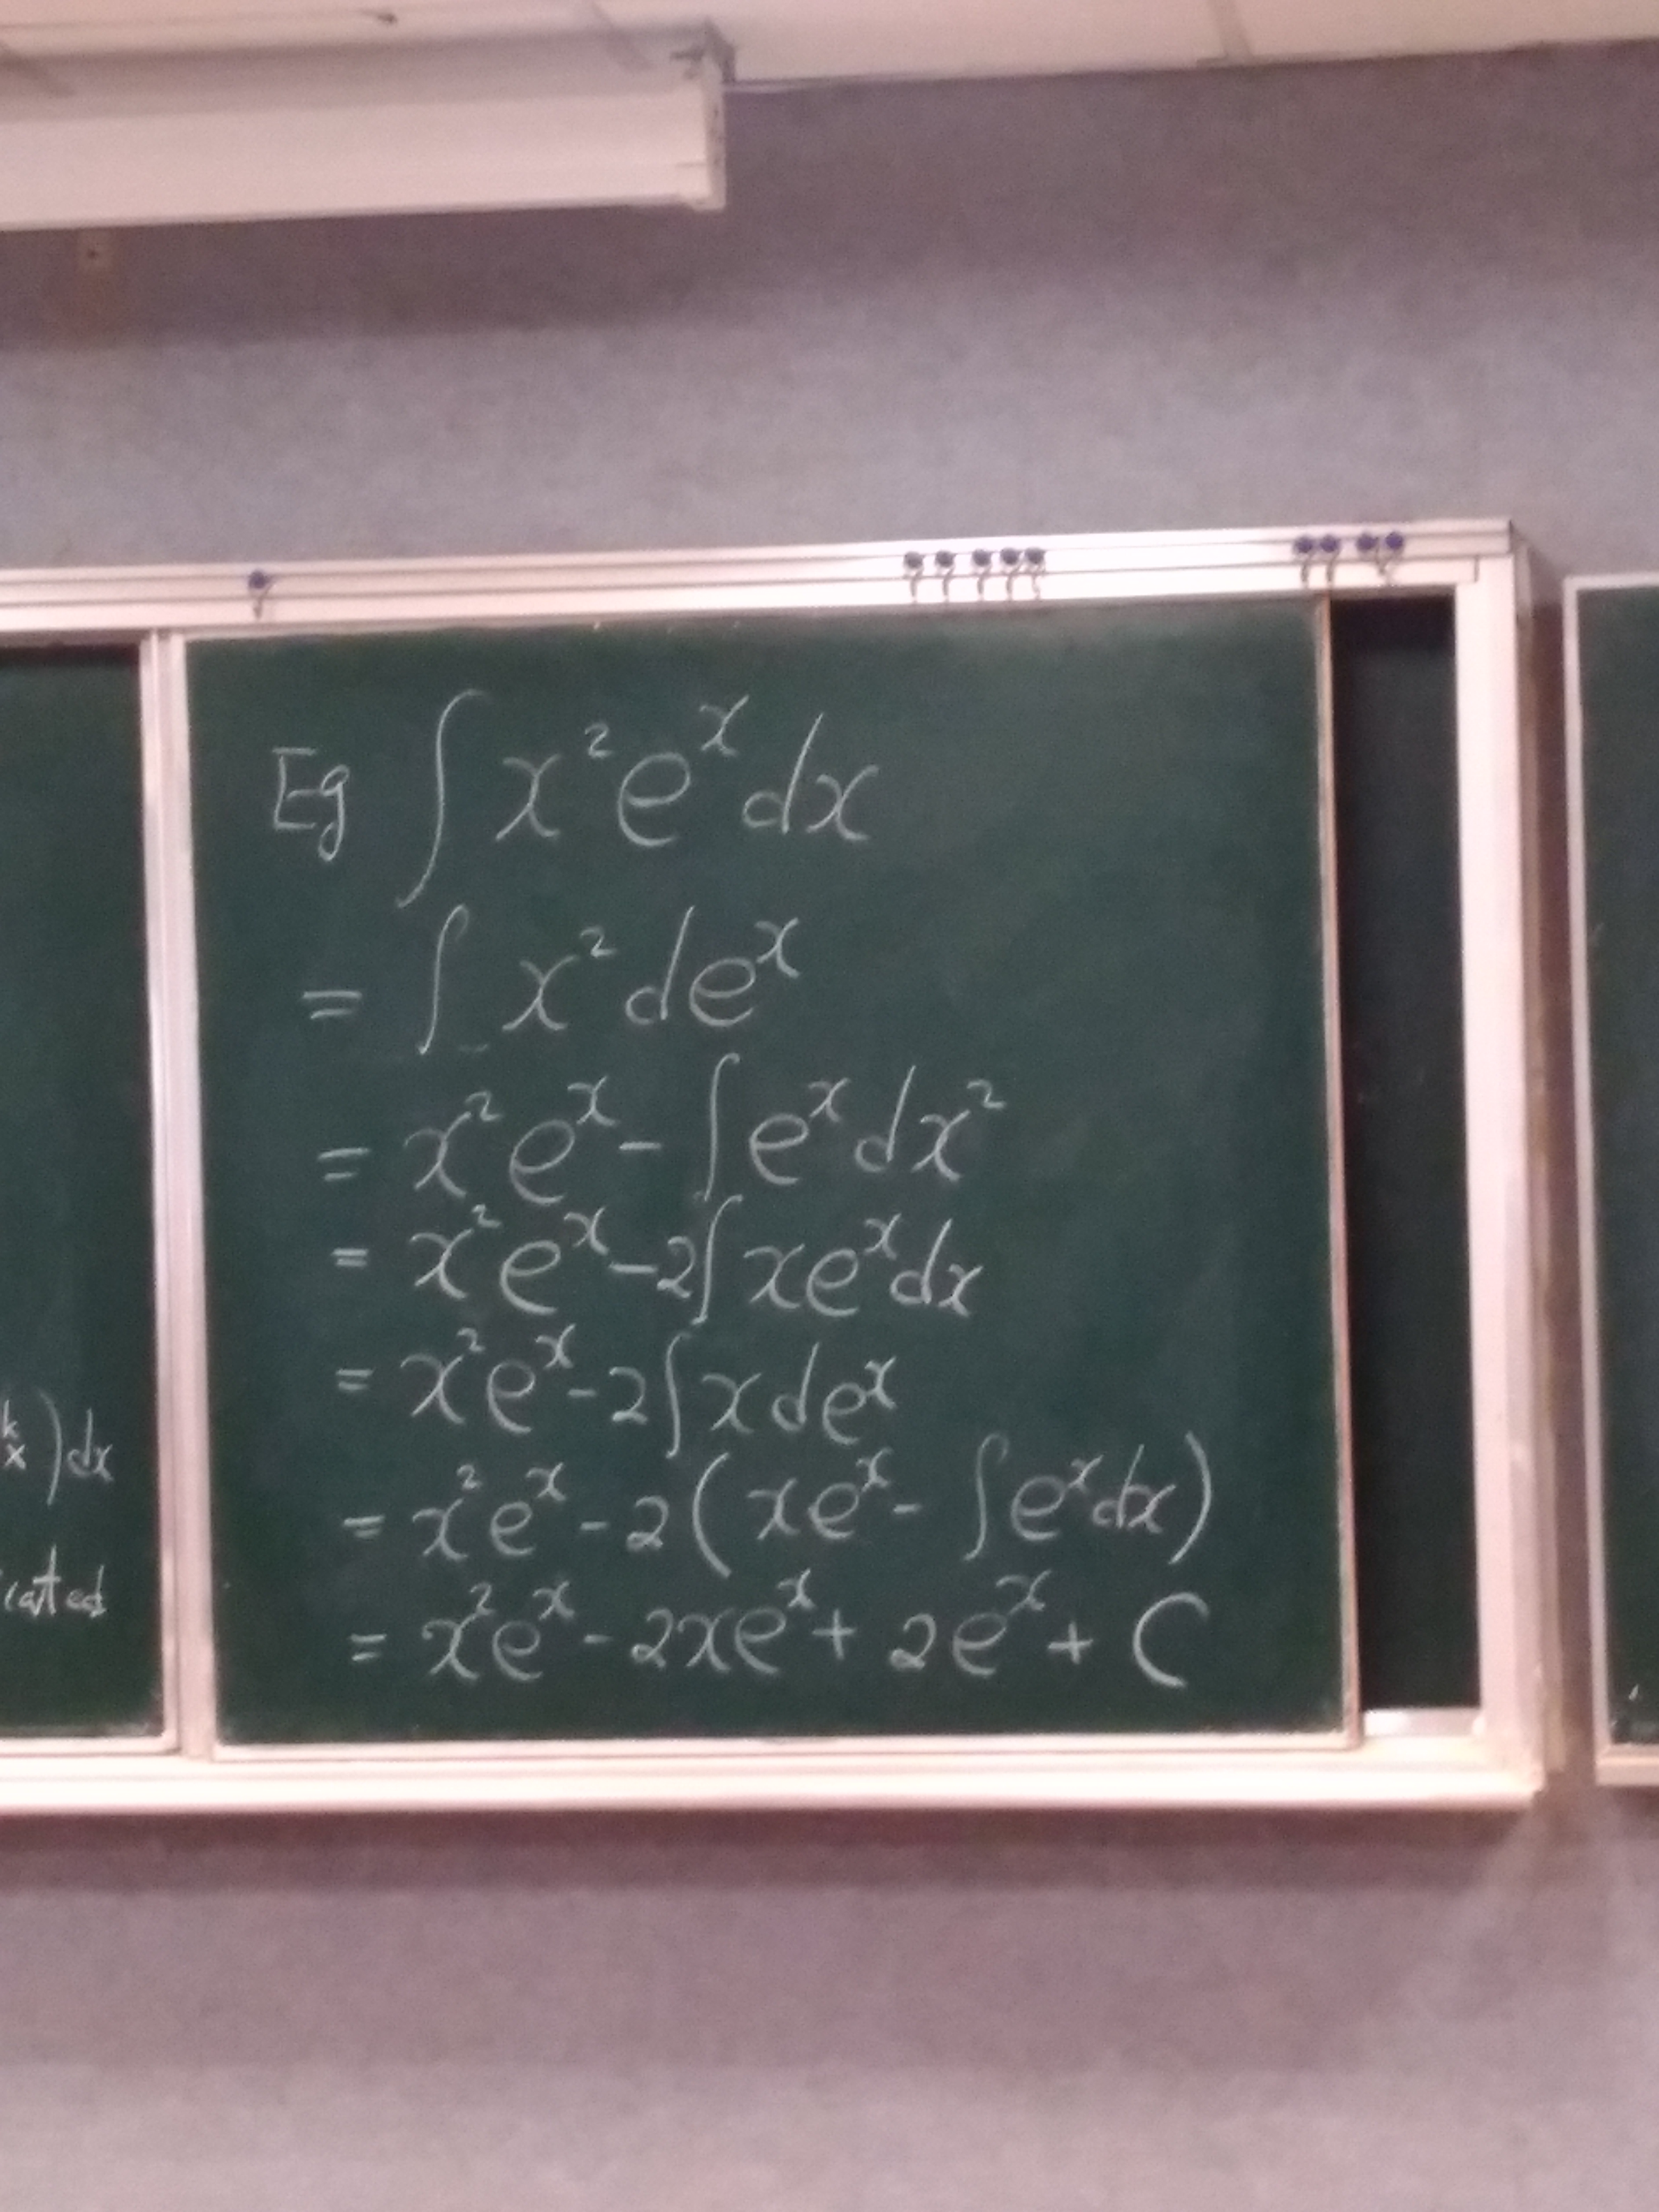 k/x)dx
icated
Eg ∫ x²eˣdx
= ∫ x²deˣ
= x²eˣ - ∫eˣdx²
= x²eˣ - 2∫xeˣdx
= x²eˣ - 2∫xdeˣ
= x²eˣ - 2(xeˣ - ∫eˣdx)
= x²eˣ - 2xeˣ + 2eˣ + C